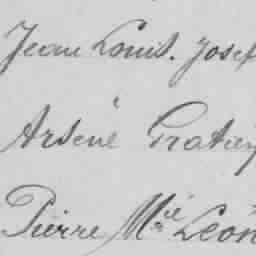 Jean Louis. Josef
Arsène
Pierre Mie Léon